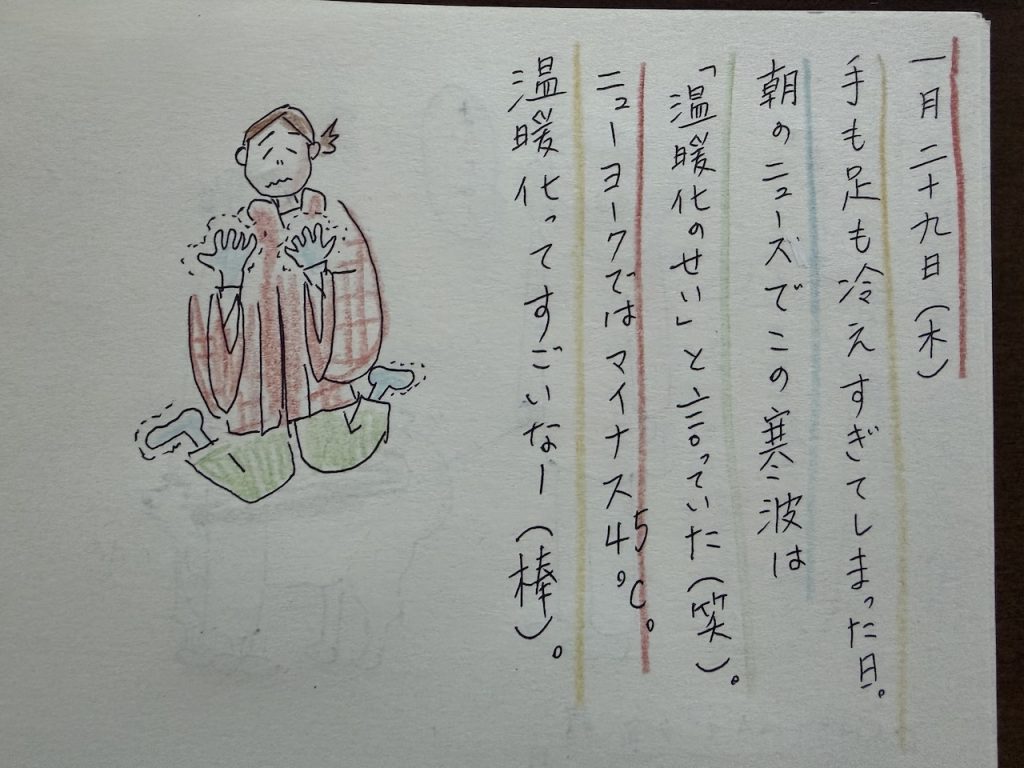 一月二十九日(木)
手も足も冷えすぎてしまった日。
朝のニューズでこの寒波は
「温暖化のせい」と言っていた(笑)。
ニューヨークではマイナス45℃。
温暖化ってすごいなー(棒)。